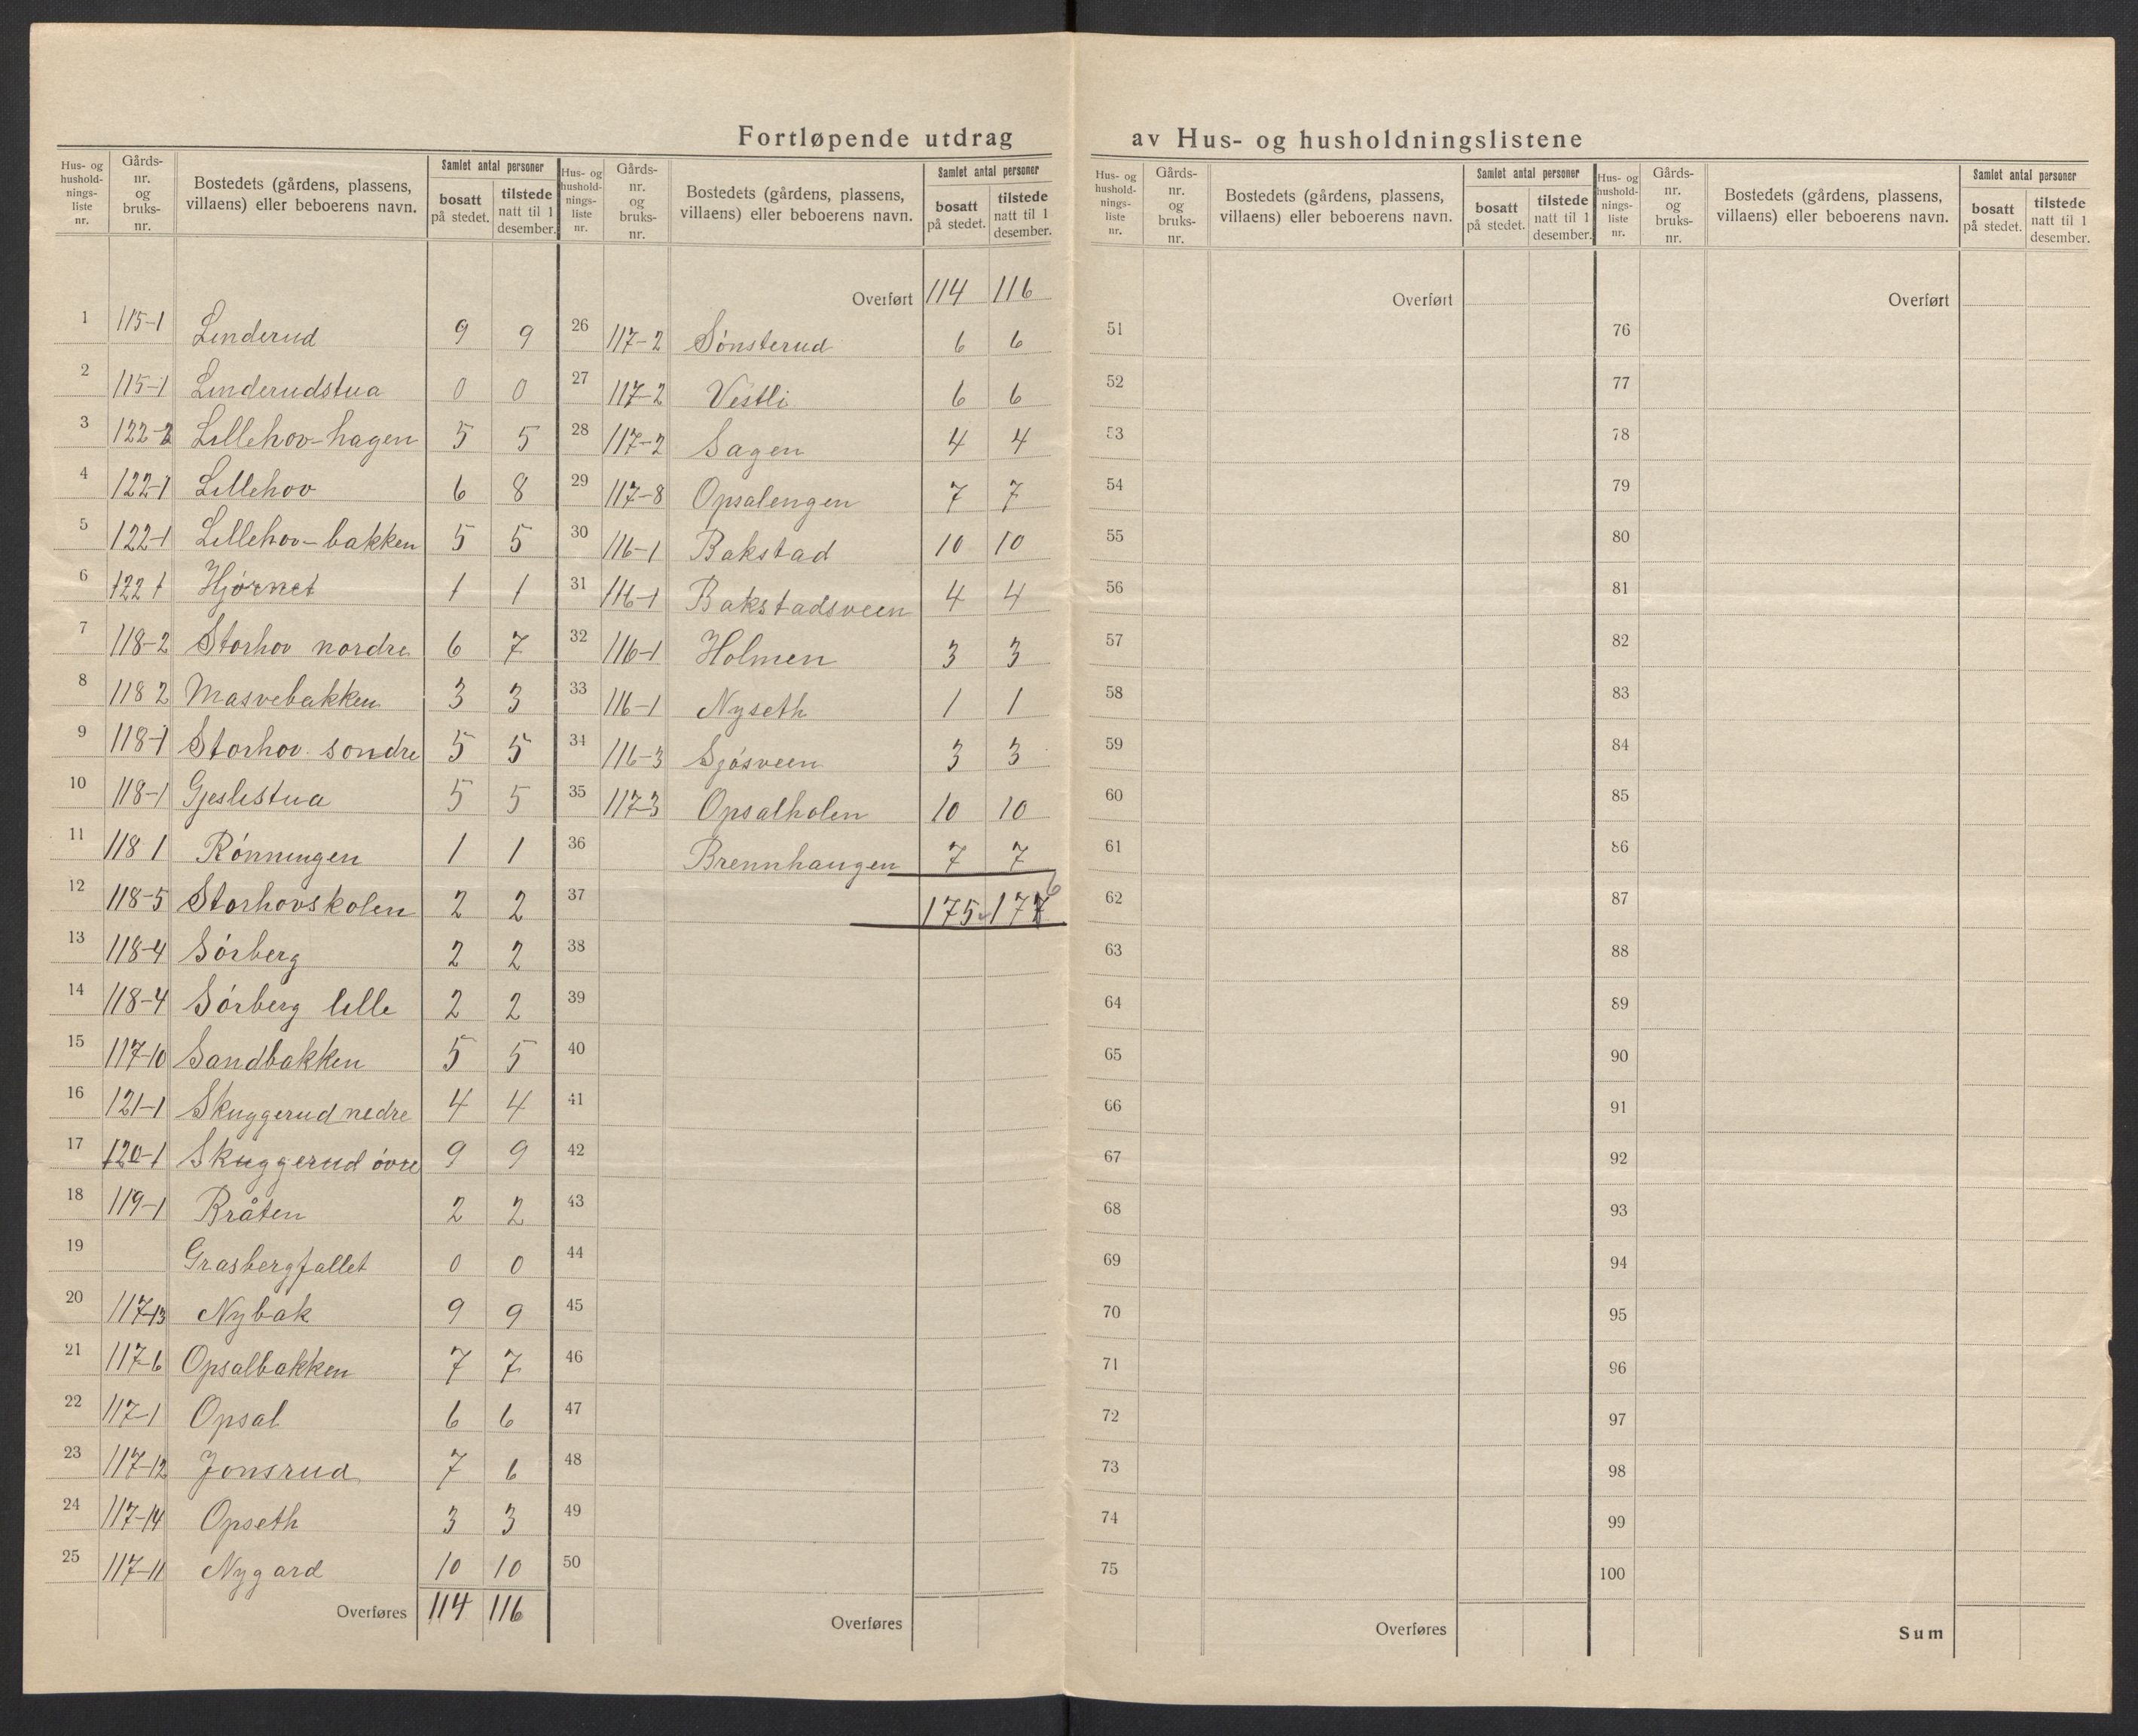 Fortløpende utdrag av Hus- og husholdningslistene
Hus- og husholdningsliste nr. | Gårdsnr. og bruksnr. | Bostedets (gårdens, plassens, villaens) eller beboerens navn. | Samlet antal personer: bosatt på stedet. | tilstede natt til 1 desember.
1 115-1 Linderud 9 9
2 115-1 Linderudstua 0 0
3 122-2 Lillehov-hagen 5 5
4 122-1 Lillehov 6 8
5 122-1 Lillehov-bakken 5 5
6 122 1 Hjørnet 1 1
7 118-2 Storhov nordre 6 7
8 118 2 Masvebakken 3 3
9 118-1 Storhov søndre 5 5
10 118-1 Gjeslestua 5 5
11 118 1 Rønningen 1 1
12 118-5 Storhovskolen 2 2
13 118-4 Sørberg 2 2
14 118-4 Sørberg lille 2 2
15 117-10 Sandbakken 5 5
16 121-1 Skuggerud nedre 4 4
17 120-1 Skuggerud øvre 9 9
18 119-1 Bråten 2 2
19 Grasbergfallet 0 0
20 117-13 Nybak 9 9
21 117-6 Opsalbakken 7 7
22 117-1 Opsal 6 6
23 117-12 Jonsrud 7 6
24 117-14 Opseth 3 3
25 117-11 Nygard 10 10
Overføres 114 116
Hus- og husholdningsliste nr. | Gårdsnr. og bruksnr. | Bostedets (gårdens, plassens, villaens) eller beboerens navn. | Samlet antal personer: bosatt på stedet. | tilstede natt til 1 desember.
Overført 114 116
26 117-2 Sønsterud 6 6
27 117-2 Vestli 6 6
28 117-2 Sagen 4 4
29 117-8 Opsalengen 7 7
30 116-1 Bakstad 10 10
31 116-1 Bakstadsveen 4 4
32 116-1 Holmen 3 3
33 116-1 Nyseth 1 1
34 116-3 Sjøsveen 3 3
35 117-3 Opsalholen 10 10
36 Brennhaugen 7 7
6
37 175 177
38
39
40
41
42
43
44
45
46
47
48
49
50
Overføres
Hus- og husholdningsliste nr. | Gårdsnr. og bruksnr. | Bostedets (gårdens, plassens, villaens) eller beboerens navn. | Samlet antal personer: bosatt på stedet. | tilstede natt til 1 desember.
Overført
51
52
53
54
55
56
57
58
59
60
61
62
63
64
65
66
67
68
69
70
71
72
73
74
75
Overføres
Hus- og husholdningsliste nr. | Gårdsnr. og bruksnr. | Bostedets (gårdens, plassens, villaens) eller beboerens navn. | Samlet antal personer: bosatt på stedet. | tilstede natt til 1 desember.
Overført
76
77
78
79
80
81
82
83
84
85
86
87
88
89
90
91
92
93
94
95
96
97
98
99
100
Sum